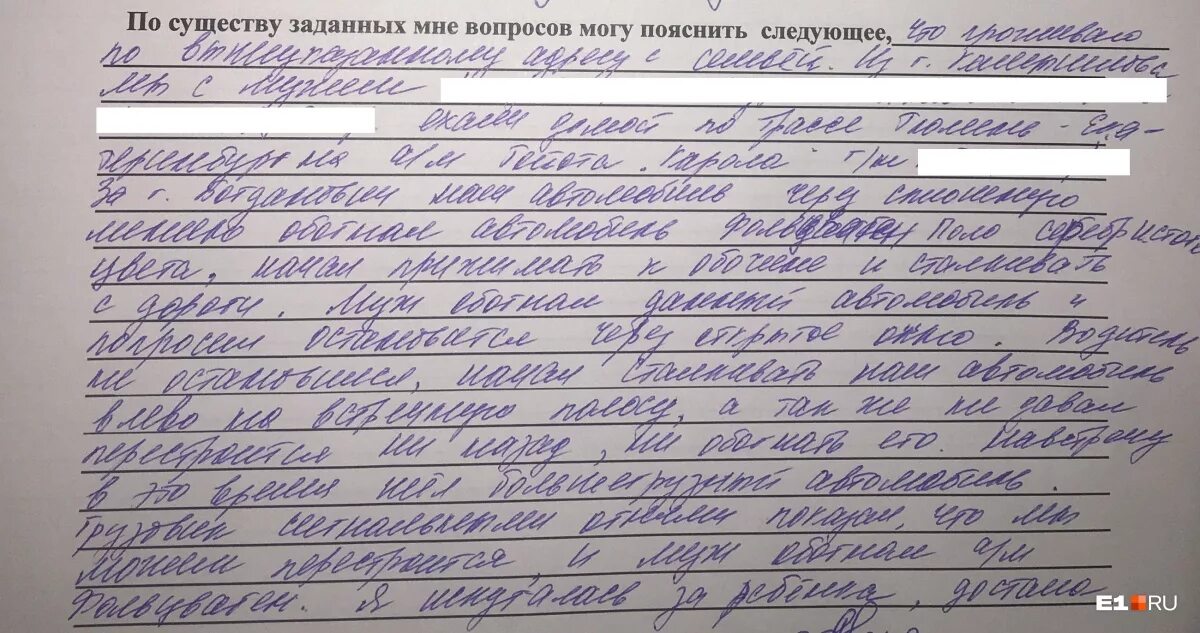 По существу заданных мне вопросов могу пояснить следующее, что проживаю
по вышеуказанному адресу с семьёй. Из г.
мы с мужем
ехали домой по трассе Тюмень - Ека-
теринбург на а/м Тойота "Карола" г/н
За г. Богданович наш автомобиль через сплошную
линию обогнал автомобиль Поло серебристого
цвета, начал прижимать к обочене и сталкивать
с дороги. Муж обогнал данный автомобиль и
попросил остановится через открытое окно. Водитель
не остановился, начал сталкивать наш автомобиль
влево на встречную полосу, а так же не давал
перестроится ни назад, ни обогнать его. Навстречу
в это время шёл большегрузный автомобиль.
Грузовик сигнальными огнями показал, что мы
можем перестроится, и муж обогнал а/м
Фольцваген. Я испугалась за ребёнка, достала
E1.RU